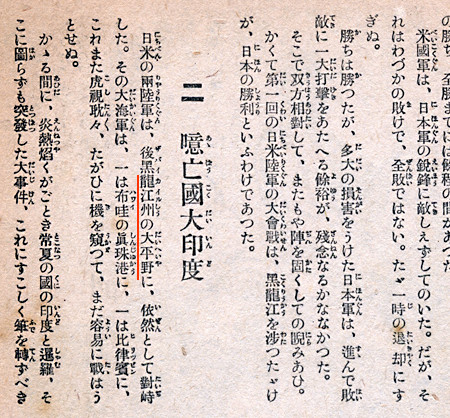 の勝ち、全勝まで
米國軍は、日本軍の鋭鋒に敵しえずしてのいた。だが、そ
れはわづかの敗けで、全敗ではない。たゞ一時の退却にす
ぎぬ。
勝ちは勝つたが、多大の損害をうけた日本軍は、進んで敗
敵に一大打擊をあたへる餘裕が、殘念なるかななかつた。
そこで双方相對して、またもや陣を固くしての睨みあひ。
かくて第一囘の日米陸軍の大會戰は、黑龍江を渉つたゞけ
が、日本の勝利といふわけであつた。
二 噫亡國大印度
日米の兩陸軍は、後黑龍江州の大平野に、依然として對峙
した。その大海軍は、一は布哇の眞珠港に、一は比律賓に、
これまた虎視耽々、たがひに機を窺つて、まだ容易に戰はう
とせぬ。
かゝる間に、炎熱焰くがごとき常夏の國の印度と暹羅、そ
こに圖らずも突發した大事件、これにすこしく筆を轉ずべき